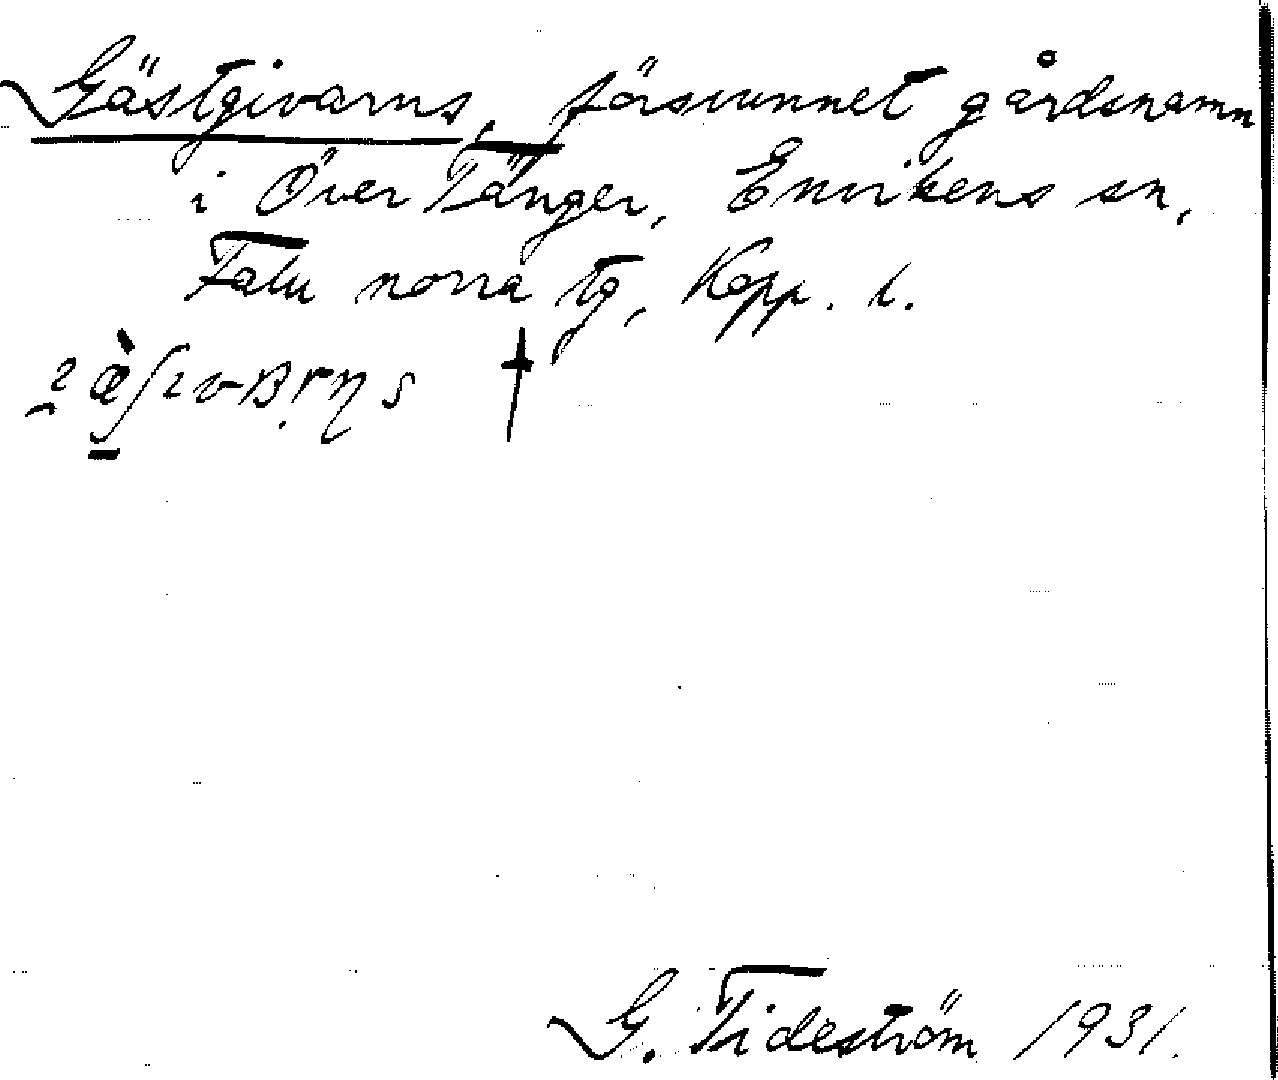 Gästgivarns, försvunnet gårdsnamn
i Över Tänger, Envikens sn,
Falu norra tg, Kopp. l.
†
G. Tideström 1931.